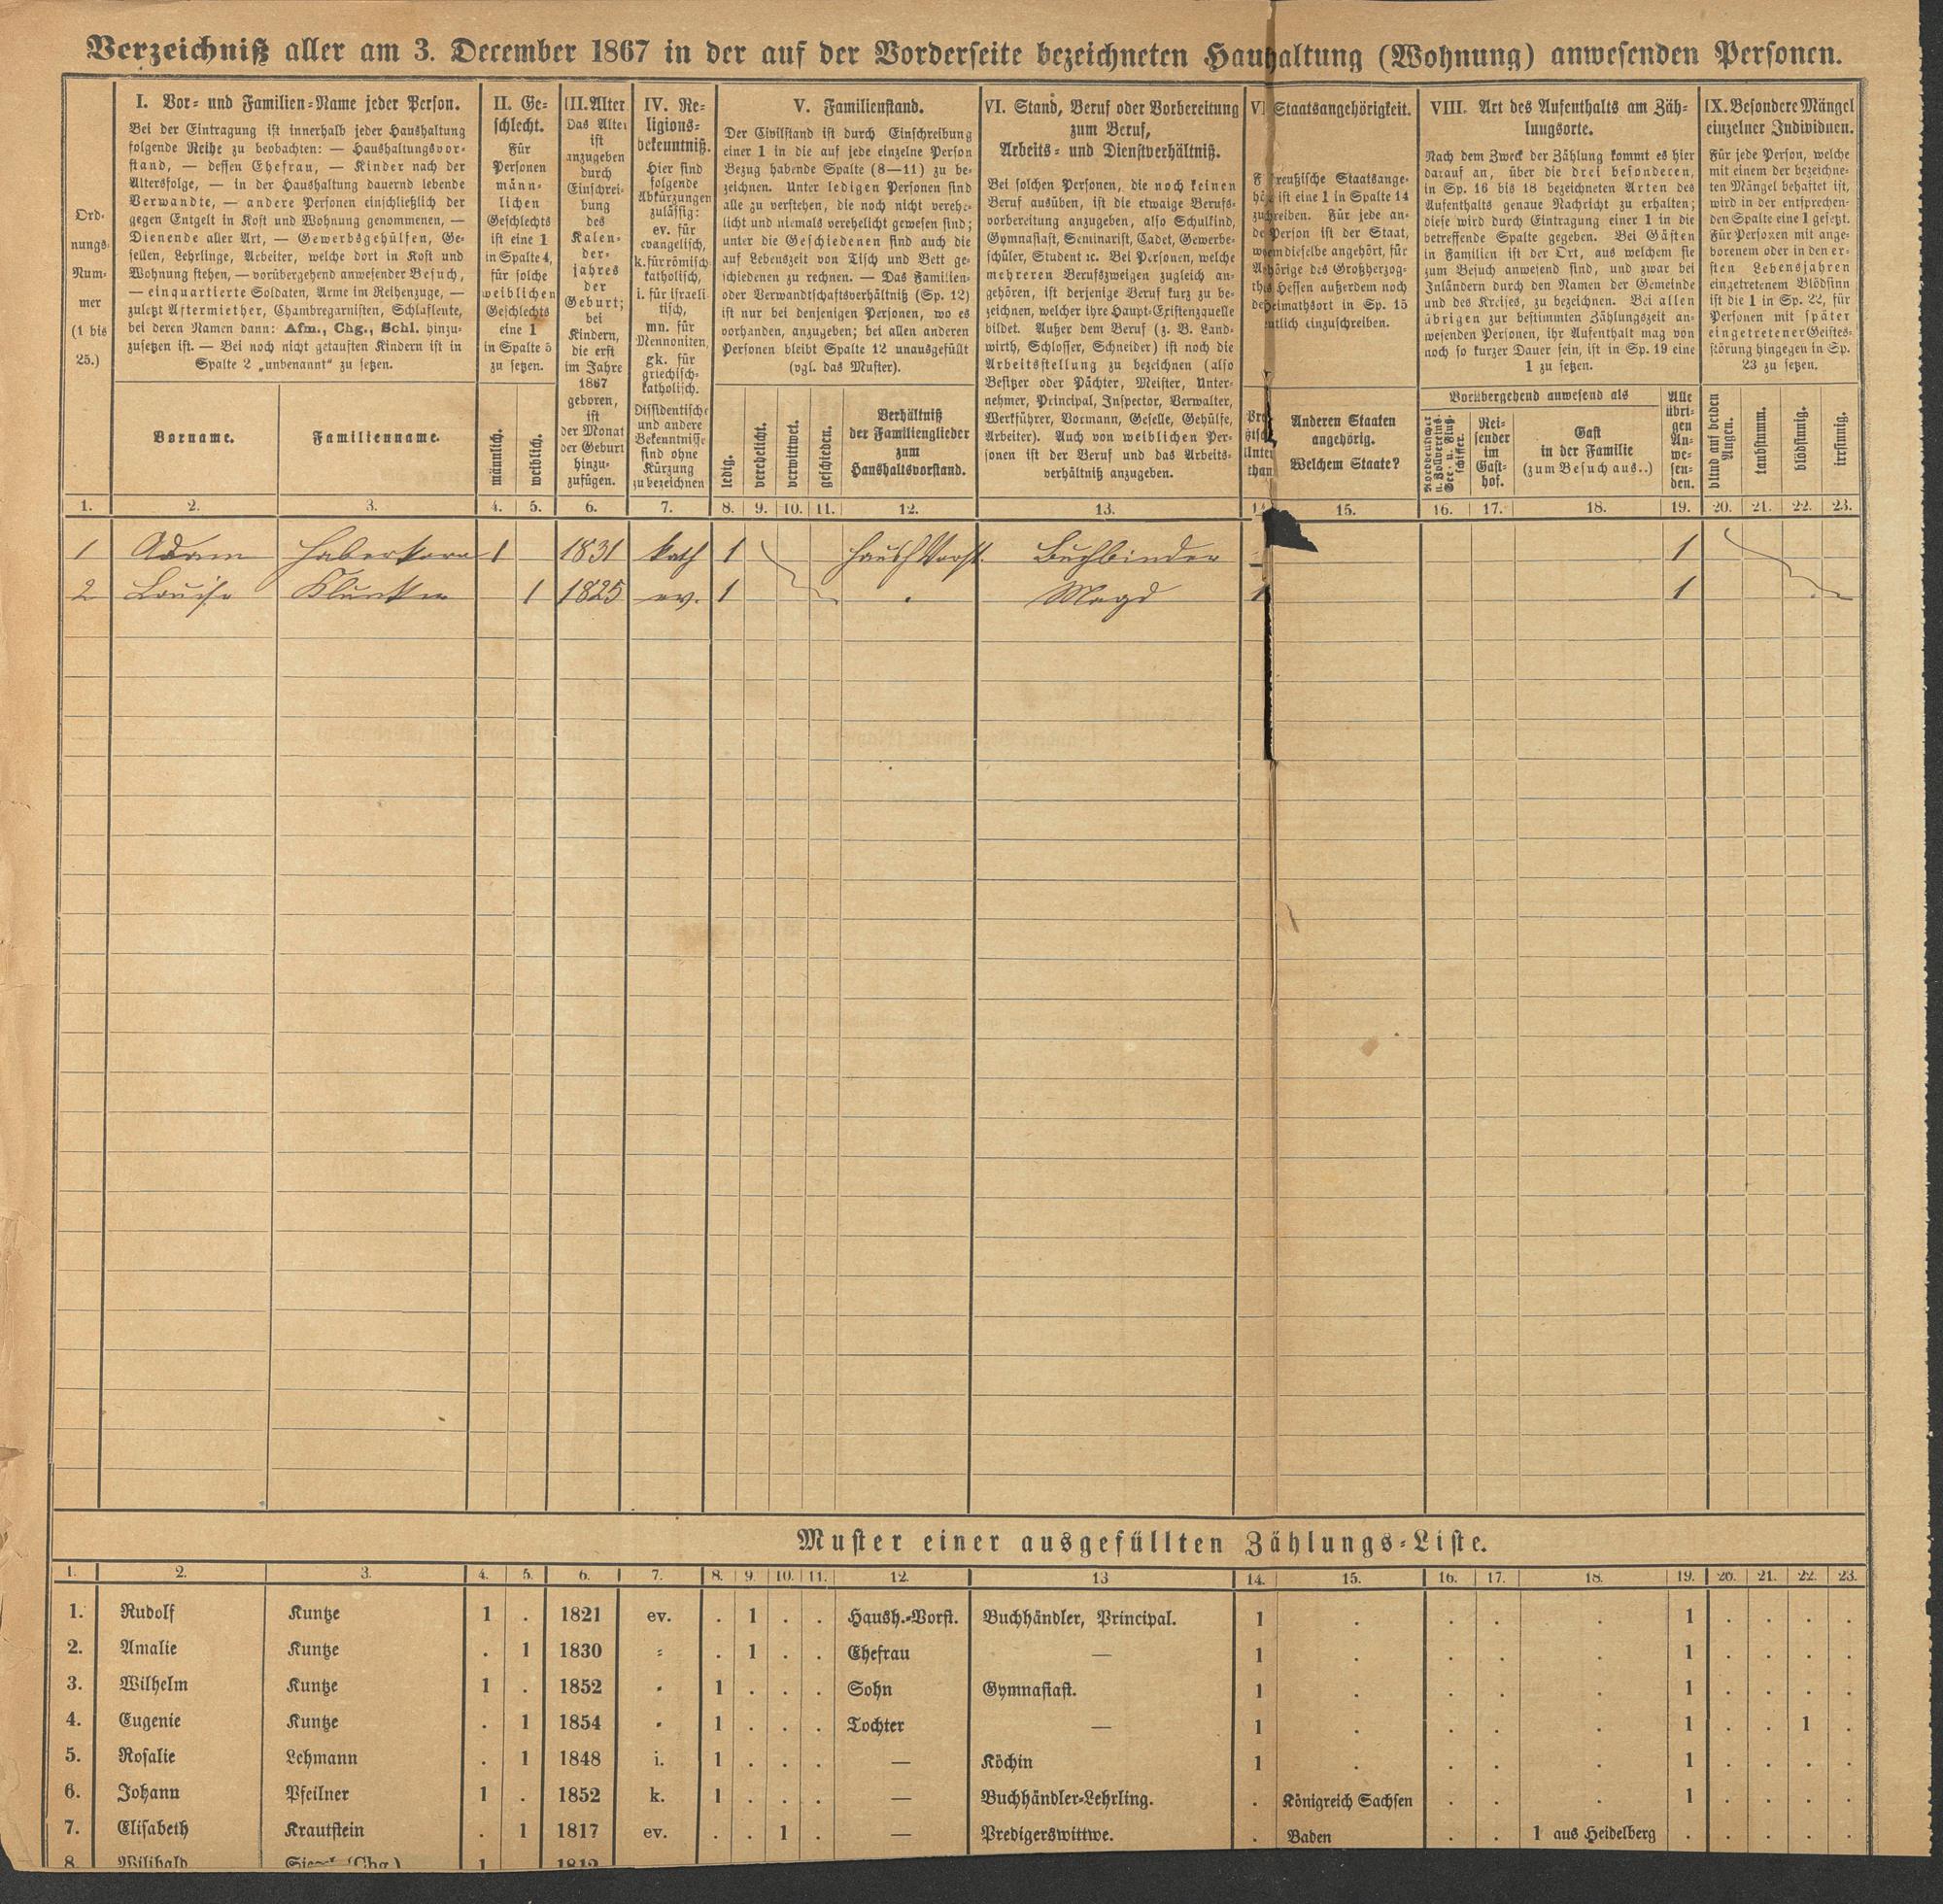 Verzeichniß aller am 3. December 1867 in der auf der Vorderseite bezeichneten Haushaltung (Wohnung) anwesenden Personen.
Ord-
nungs-
Num-
mer
(1 bis
25.)
I. Vor- und Familien-Name jeder Person.
Bei der Eintragung ist innerhalb jeder Haushaltung
folgende Reihe zu beobachten: — Haushaltungsvor-
stand, — dessen Ehefrau, — Kinder nach der
Altersfolge, — in der Haushaltung dauernd lebende
Verwandte, — andere Personen einschließlich der
gegen Entgelt in Kost und Wohnung genommenen, —
Dienende aller Art, — Gewerbsgehülfen, Ge-
sellen, Lehrlinge, Arbeiter, welche dort in Kost und
Wohnung stehen, — vorübergehend anwesender Besuch,
— einquartierte Soldaten, Arme im Reihenzuge, —
zuletzt Aftermiether, Chambregarnisten, Schlafleute,
bei deren Namen dann: Afm., Chg., Schl. hinzu-
zusetzen ist. — Bei noch nicht getauften Kindern ist in
Spalte 2 „unbenannt" zu setzen.
Vorname.
Familienname.
II. Ge-
schlecht.
Für
Personen
männ-
lichen
Geschlechts
ist eine 1
in Spalte 4,
für solche
weiblichen
Geschlechts
eine 1
in Spalte 5
zu setzen.
männlich.
weiblich.
III. Alter
Das Alter
ist
anzugeben
durch
Einschrei-
bung
des
Kalen-
der-
jahres
der
Geburt;
bei
Kindern,
die erst
im Jahre
1867
geboren,
ist
der Monat
der Geburt
hinzu-
zufügen.
IV. Re-
ligions-
bekenntniß.
Hier sind
folgende
Abkürzungen
zulässig:
ev. für
evangelisch,
k. für römisch-
katholisch,
i. für israeli-
tisch,
mn. für
Mennoniten,
gk. für
griechisch-
katholisch.
Dissidentische
und andere
Bekenntnisse
sind ohne
Kürzung
zu bezeichnen
V. Familienstand.
Der Civilstand ist durch Einschreibung
einer 1 in die auf jede einzelne Person
Bezug habende Spalte (8—11) zu be-
zeichnen. Unter ledigen Personen sind
alle zu verstehen, die noch nicht verehe-
licht und niemals verehelicht gewesen sind;
unter die Geschiedenen sind auch die
auf Lebenszeit von Tisch und Bett ge-
schiedenen zu rechnen. — Das Familien-
oder Verwandtschaftsverhältniß (Sp. 12)
ist nur bei denjenigen Personen, wo es
vorhanden, anzugeben; bei allen anderen
Personen bleibt Spalte 12 unausgefüllt
(vgl. das Muster).
ledig.
verehelicht.
verwittwet.
geschieden.
Verhältniß
der Familienglieder
zum
Haushaltsvorstand.
VI. Stand, Beruf oder Vorbereitung
zum Beruf,
Arbeits- und Dienstverhältniß.
Bei solchen Personen, die noch keinen
Beruf ausüben, ist die etwaige Berufs-
vorbereitung anzugeben, also Schulkind,
Gymnasiast, Seminarist, Cadet, Gewerbe-
schüler, Student ꝛc. Bei Personen, welche
mehreren Berufszweigen zugleich an-
gehören, ist derjenige Beruf kurz zu be-
zeichnen, welcher ihre Haupt-Existenzquelle
bildet. Außer dem Beruf (z. B. Land-
wirth, Schlosser, Schneider) ist noch die
Arbeitsstellung zu bezeichnen (also
Besitzer oder Pächter, Meister, Unter-
nehmer, Principal, Inspector, Verwalter,
Werkführer, Vormann, Geselle, Gehülfe,
Arbeiter). Auch von weiblichen Per-
sonen ist der Beruf und das Arbeits-
verhältniß anzugeben.
Staatsangehörigkeit.
reußische Staatsange-
ist eine 1 in Spalte 14
zuschreiben. Für jede an-
dere Person ist der Staat,
welchem dieselbe angehört, für
Angehörige des Großherzog-
thums Hessen außerdem noch
der Heimathsort in Sp. 15
einzuschreiben.
Anderen Staaten
angehörig.
Welchem Staate?
VIII. Art des Aufenthalts am Zäh-
lungsorte.
Nach dem Zweck der Zählung kommt es hier
darauf an, über die drei besonderen,
in Sp. 16 bis 18 bezeichneten Arten des
Aufenthalts genaue Nachricht zu erhalten;
diese wird durch Eintragung einer 1 in die
betreffende Spalte gegeben. Bei Gästen
in Familien ist der Ort, aus welchem sie
zum Besuch anwesend sind, und zwar bei
Inländern durch den Namen der Gemeinde
und des Kreises, zu bezeichnen. Bei allen
übrigen zur bestimmten Zählungszeit an-
wesenden Personen, ihr Aufenthalt mag von
noch so kurzer Dauer sein, ist in Sp. 19 eine
1 zu setzen.
Vorübergehend anwesend als
Norddeutscher
u. Vollvereins-
See- u. Fluß-
schiffer.
Rei-
sender
im
Gast-
hof.
Gast
in der Familie
(zum Besuch aus..)
Alle
übri-
gen
An-
we-
sen-
den.
IX. Besondere Mängel
einzelner Individuen.
Für jede Person, welche
mit einem der bezeichne-
ten Mängel behaftet ist,
wird in der entsprechen-
den Spalte eine 1 gesetzt.
Für Personen mit ange-
borenem oder in den er-
sten Lebensjahren
eingetretenem Blödsinn
ist die 1 in Sp. 22, für
Personen mit später
eingetretener Geistes-
störung hingegen in Sp.
23 zu setzen.
blind auf beiden
Augen.
taubstumm.
blödsinnig.
irrsinnig.
1. 2. 3. 4. 5. 6. 7. 8. 9. 10. 11. 12. 13. 15. 16. 17. 18. 19. 20. 21. 22. 23.
1 Adam Haberkorn 1 1831 kath 1 HaushVorst. Buchbinder 1
2 Louise 1 1825 ev. 1 . Magd 1 1
Muster einer ausgefüllten Zählungs-Liste.
1. 2. 3. 4. 5. 6. 7. 8. 9. 10. 11. 12. 13 14. 15. 16. 17. 18. 19. 20. 21. 22. 23.
1. Rudolf Kuntze 1 . 1821 ev. . 1 . . Haush.-Vorst. Buchhändler, Principal. 1 . . . . 1 . . . .
2. Amalie Kuntze . 1 1830 „ . 1 . . Ehefrau — 1 . . . . 1 . . . .
3. Wilhelm Kuntze 1 . 1852 „ 1 . . . Sohn Gymnasiast. 1 . . . . 1 . . . .
4. Eugenie Kuntze . 1 1854 „ 1 . . . Tochter — 1 . . . . 1 . . 1 .
5. Rosalie Lehmann . 1 1848 i. 1 . . . — Köchin 1 . . . . 1 . . . .
6. Johann Pfeilner 1 . 1852 k. 1 . . . — Buchhändler-Lehrling. . Königreich Sachsen . . . 1 . . . .
7. Elisabeth Krautstein . 1 1817 ev. . . 1 . — Predigerswittwe. . Baden . . 1 aus Heidelberg . . . . .
8. Wilibald (Chg.) 1 1812